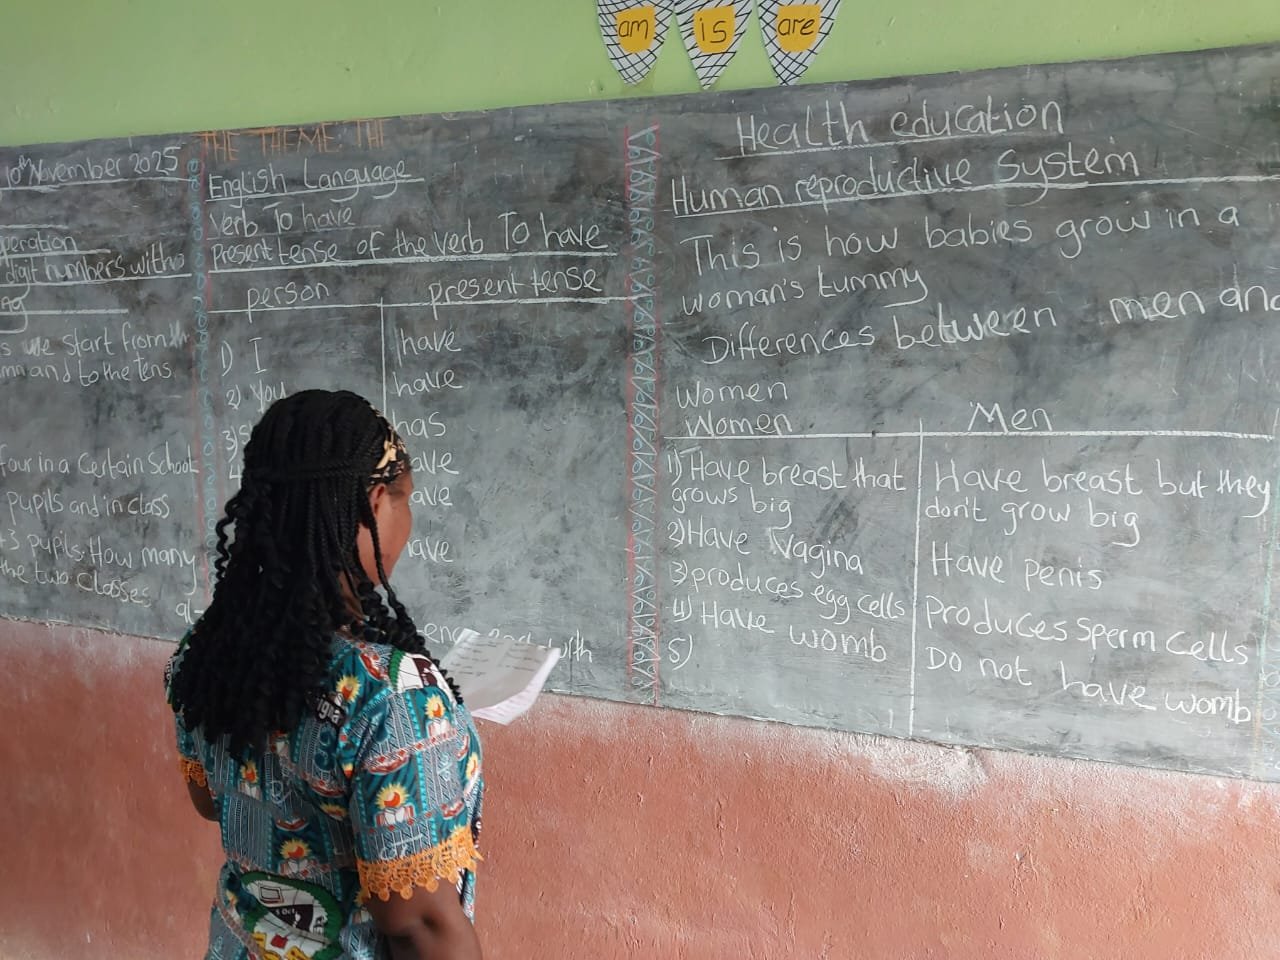 am is are
10th November 2025
peration
digit numbers with
s we start from th
mn and to the tens.
four in a Certain School
pupils and in class
+3 pupils. How many
the two Classes
THE THEME: THE
English Language
Verb To have
Present tense of the verb To have
person present tense
1) I have
2) You have
3) has
4 ave
ave
ave
with
Health education
Human reproductive System
This is how babies grow in a
woman's tummy
Differences between men and
Women
Women Men
1) Have breast that Have breast but they
grows big don't grow big
2) Have Vagina Have penis
3) produces egg cells Produces sperm cells
4) Have womb Do not have womb
5)
5 Oct